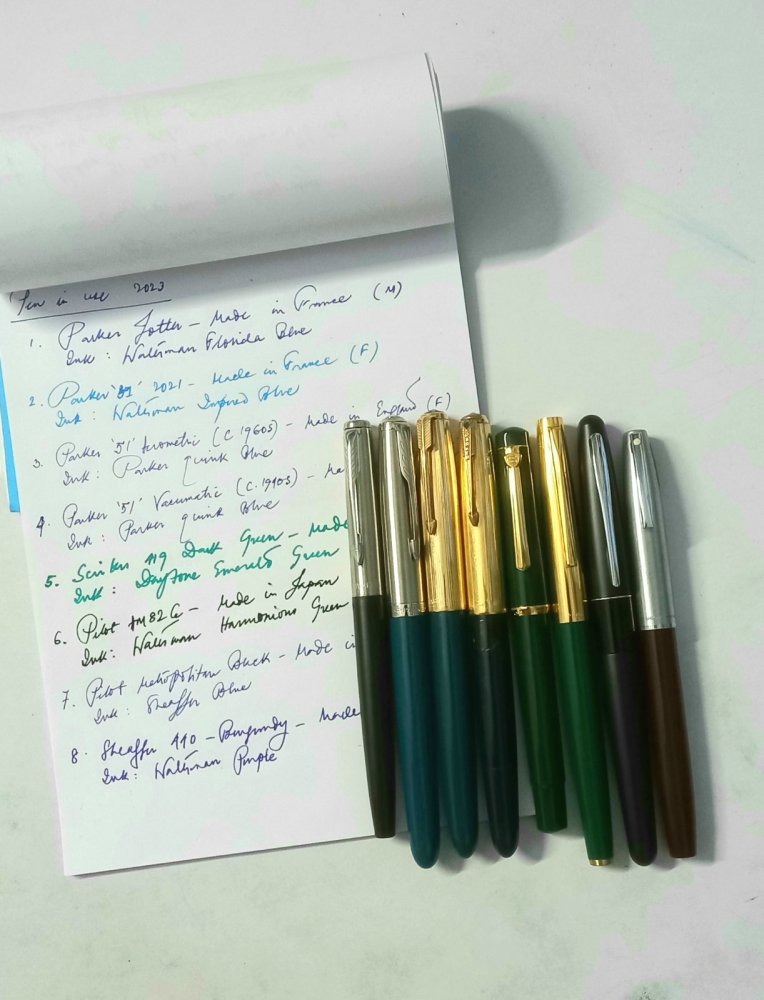 Pen in use 2023
1. Parker Jotter - Made in France (M)
Ink: Waterman Florida Blue
2. Parker '51' 2021 - Made in France (F)
Ink: Waterman Inspired Blue
3. Parker '51' Aerometric (C 1960s) - Made in England (F)
Ink: Parker Quink Blue
4. Parker '51' Vacumatic (C. 1940s) - Ma
Ink: Parker Quink Blue
5. Scrikss 419 Dark Green - Made
Ink: Daytone Emerald Green
6. Pilot FM82G - Made in Japan
Ink: Waterman Harmonious Green
7. Pilot Metropolitan Black - Made in
Ink: Sheaffer Blue
8. Sheaffer 440 - Burgundy - Made
Ink: Waterman Purple